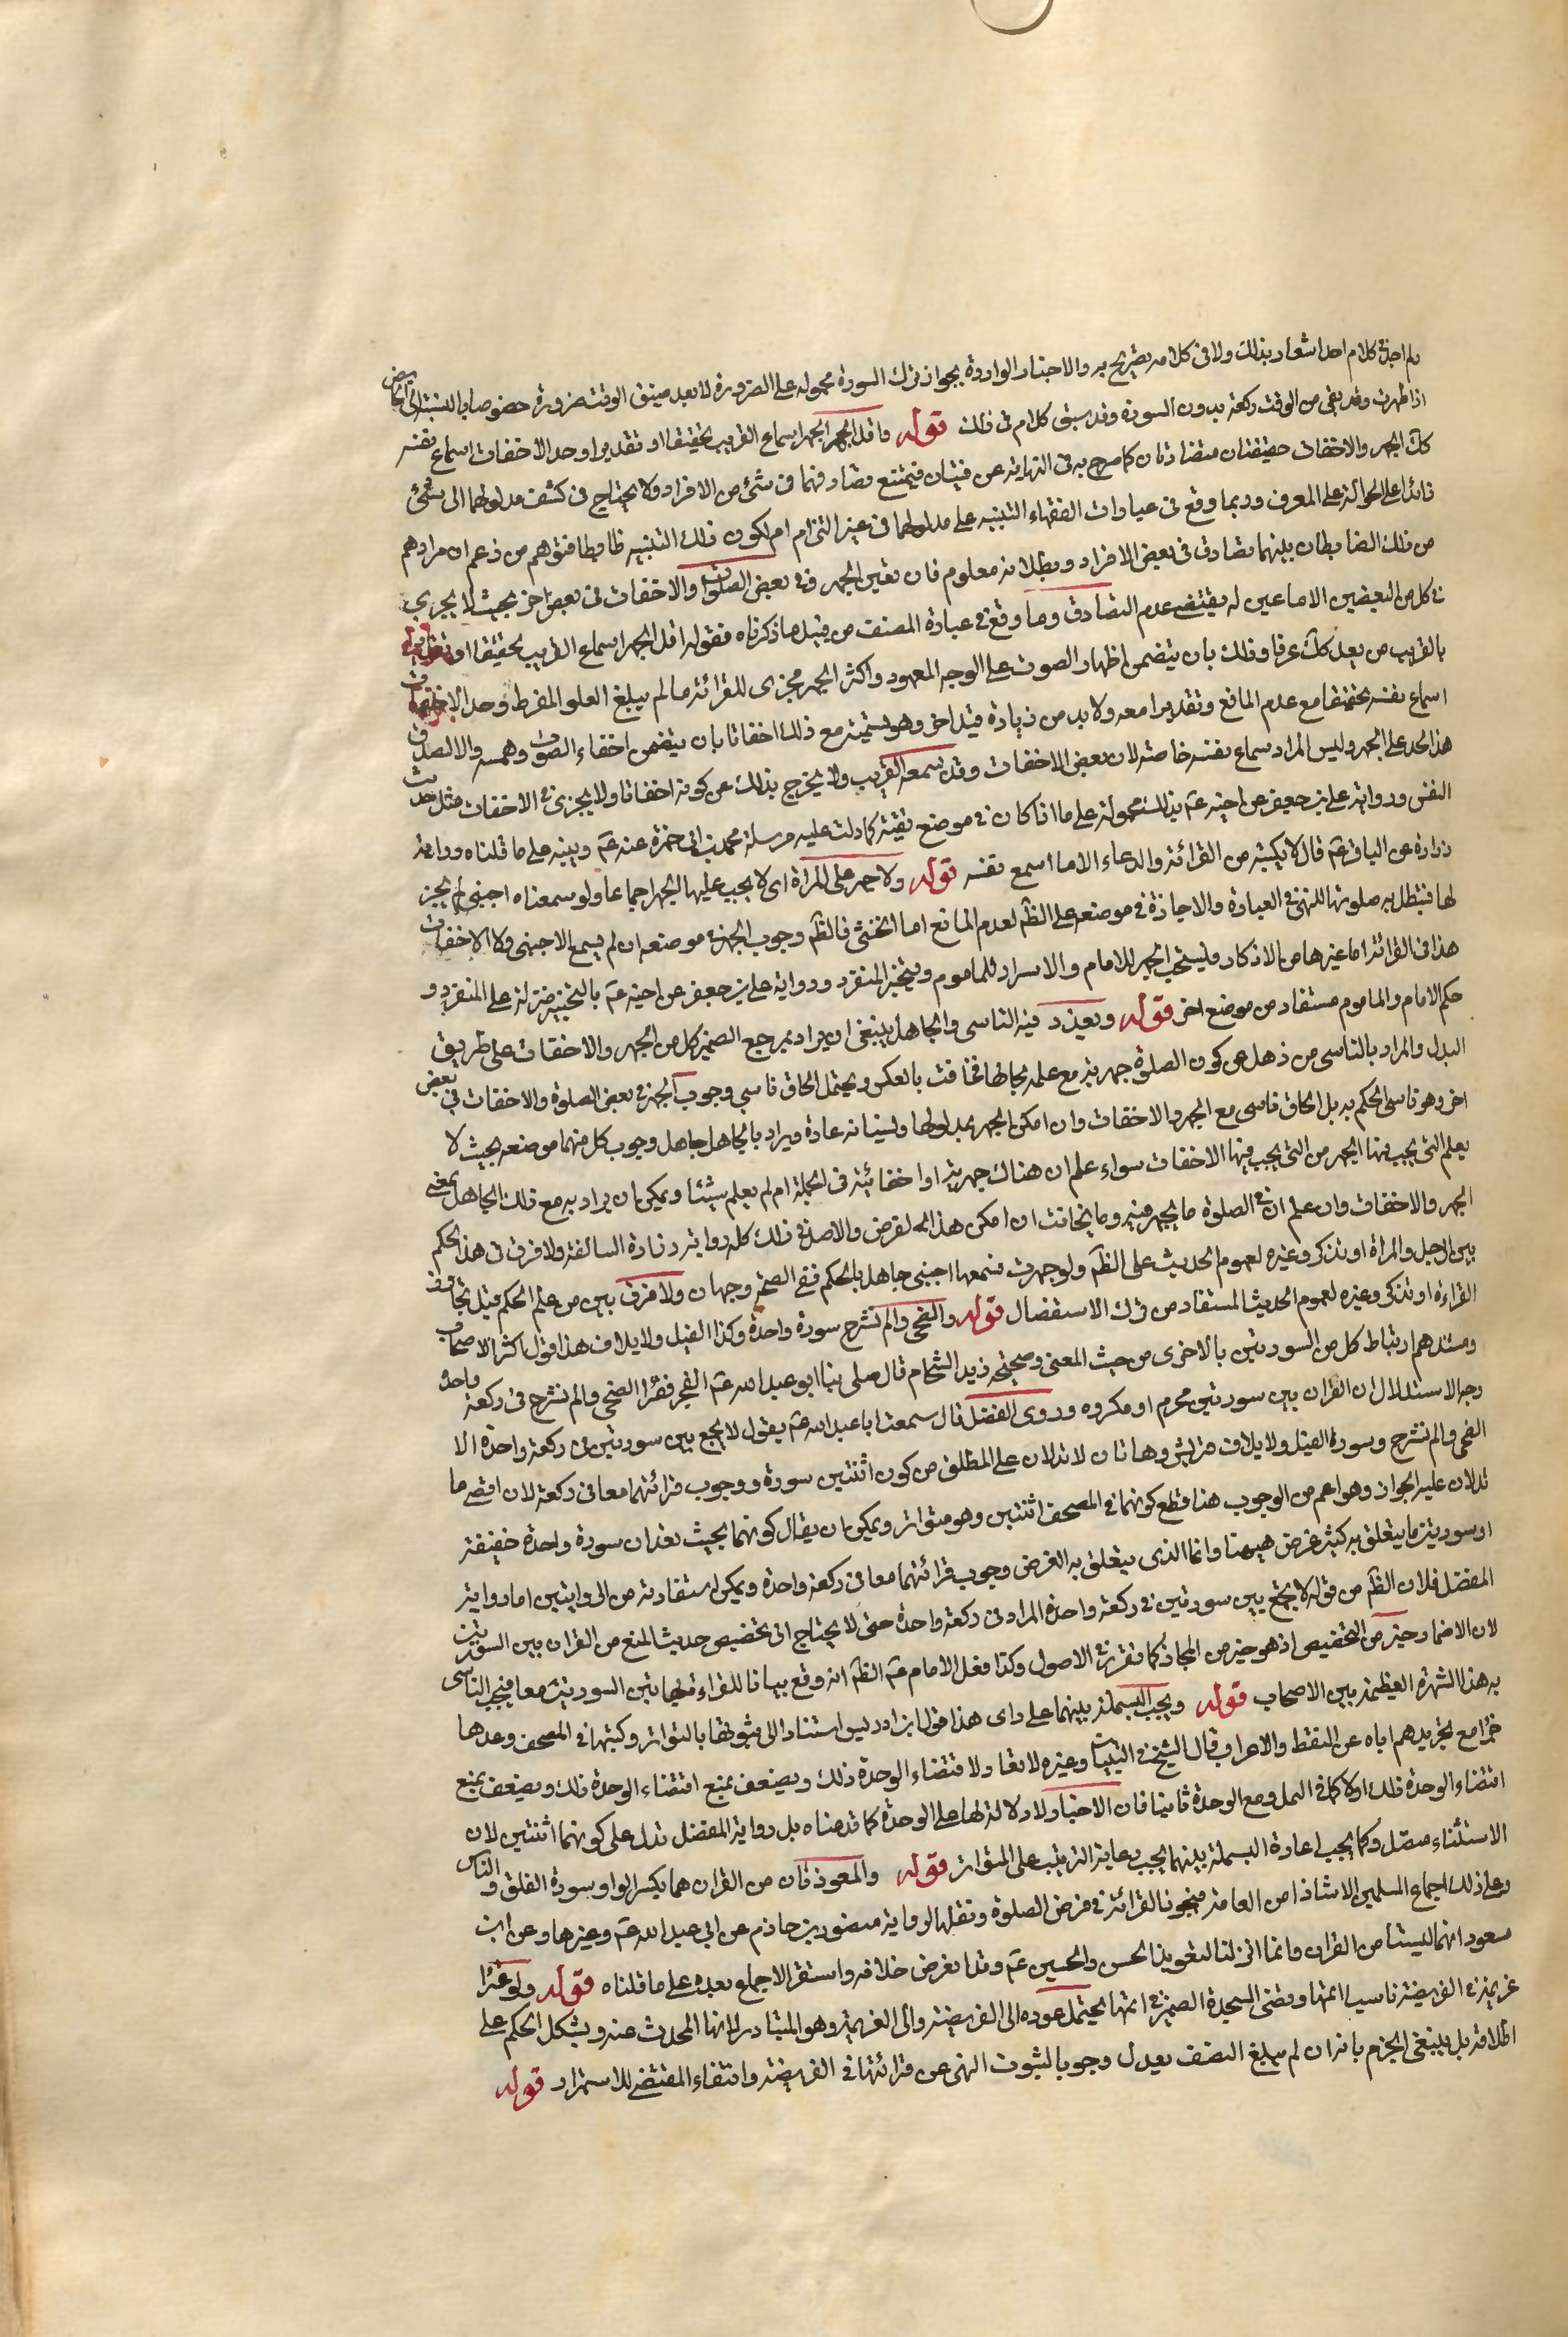 ولم اجد في كلام احد اشعار بذلك ولا في كلامه تصريح به والاخبار الواردة بجواز ترك السورة محمولة على الضرورة لا بعد ضيق الوقت ضرورة خصوصا بالنسبة الى الحائض
اذا طهرت وقد بقى من الوقت ركعة بدون السورة وقد سبق كلام في ذلك قوله واقل الجهر الجهر اسماع القريب تحقيقا او تقديرا وحد الاخفات اسماع نفسه
كك الجهر والاخفات حقيقتان متضادتان كما صرح به في النهاية عن فيتان فيمتنع تصادقهما في شئ من الافراد ولا يحتاج في كشف مدلولهما الى شئ
زائدا على الحوالة على العرف وربما وقع في عبارات الفقهاء التنبيه على مدلولهما في غير التزام ام لكون ذلك التنبيه ضابطا فتوهم من زعم ان مرادهم
من ذلك الضابط ان بينهما تصادق في بعض الافراد وبطلانه معلوم فان تعين الجهر في بعض الصلوات والاخفات في بعض اخر بحيث لا يجزي
في كل من البعضين الا ما عين له يقتضى عدم التصادق وما وقع في عبارة المصنف من قبيل ما ذكرناه فقوله اقل الجهر اسماع القريب تحقيقا او تقديرا
بالقريب من يعد كك عرفا وذلك بان يتضمن اظهار الصوت على الوجه المعهود واكثر الجهر مجزى للقرائة ما لم يبلغ العلو المفرط وحد الاخفات
اسماع نفسه تحقيقا مع عدم المانع وتقديرا معه ولا بد من زيادة قيد اخر وهو تسميته مع ذلك اخفاتا بان يتضمن اخفاء الصوت وهمسه والا لصدق
هذا الحد على الجهر وليس المراد سماع نفسه خاصة لان بعض الاخفات وقد يسمعه القريب ولا يخرج بذلك عن كونه اخفاتا ولا يجزى في الاخفات مثل حديث
النفس ورواية على بن جعفر عن اخيه عم بذلك محمولة على ما اذا كان في موضع تقية كما دلت عليه مرسلة محمد بن ابى حمزة عنه عم وينبه على ما قلناه رواية
زرارة عن الباقر عم قال لا يكتب من القرائة والدعاء الا ما اسمع نفسه قوله ولا جهر على المراة اى لا يجب عليها الجهر اجماعا ولو سمعناه اجنبى لم يجز
لها فتبطل به صلوتها للنهى في العبادة والاجازة في موضعه على الظم لعدم المانع اما الخنثى فالظم وجوب الجهر في موضعه ان لم يسمع الاجنبى والا الاخفات
هذا في القرائة اما غيرها من الاذكار فيستحب الجهر للامام والاسرار للماموم ويتخير المنفرد ورواية على بن جعفر عن اخيه عم بالتخيير منزلة على المنفرد و
حكم الامام والماموم مستفاد من موضع اخر قوله ويعذر فيه الناسى والجاهل ينبغى ان يراد بمرجع الضمير كل من الجهر والاخفات على طريق
البدل والمراد بالناسى من ذهل عن كون الصلوة جهرية مع علمه بحالها فخافت بالعكس ويحتمل الحاق ناسي وجوب الجهر في بعض الصلوة والاخفات في بعض
اخر وهو ناسى الحكم به بل الحاق ناسى مع الجهر والاخفات وان امكن الجهر بمدلولها ونسيانه عادة ويراد بالجاهل جاهل وجوب كل منهما موضعه بحيث لا
يعلم التى يجب فيها الجهر من التى يجب فيها الاخفات سواء علم ان هناك جهرية او اخفاتية في الجملة ام لم يعلم شيئا ويمكن ان يراد به مع ذلك الجاهل بمعنى
الجهر والاخفات وان علم ان في الصلوة ما يجهر فيه وما يخافت ان امكن هذا الفرض والاصل في ذلك كله رواية زرارة السالفة ولا فرق في هذا الحكم
بين الرجل والمراة او تذكر وغيره لعموم الحديث على الظم ولو جهرت فسمعها اجنبى جاهل بالحكم ففي الصحة وجهان ولا فرق بين من علم الحكم قبل تجاوز
القراءة او تذكر وغيره لعموم الحديث المستفاد من ترك الاستفصال قوله والضحى والم نشرح سورة واحدة وكذا الفيل ولايلاف هذا قول اكثر الاصحاب
ومستندهم ارتباط كل من السورتين بالاخرى من حيث المعنى وصحيحة زيد الشحام قال صلى بنا ابو عبد الله عم الفجر فقرا الضحى والم نشرح في ركعة واحدة
وجه الاستدلال ان القران بين سورتين محرم او مكروه وروى المفضل قال سمعت ابا عبد الله عم يقول لا يجمع بين سورتين في ركعة واحدة الا
الضحى والم نشرح وسورة الفيل ولايلاف قريش وهاتان لا تدلان على المطلق من كون اثنتين سورة ووجوب قرائتهما معا في ركعة لان اقصى ما
تدلان عليه الجواز وهو اعم من الوجوب هذا مع قطع كونهما في المصحف اثنتين وهو متواتر ويمكن ان يقال كونهما بحيث تعدان سورة واحدة حقيقة
او سورتين ما يتعلق به كثير غرض هيهنا وانما الذى يتعلق به الغرض وجوب قرائتهما معا في ركعة واحدة ويمكن استفادته من الروايتين اما رواية
المفضل فلان الظم من قوله لا يجمع بين سورتين في ركعة واحدة المراد في ركعة واحدة حتى لا يحتاج الى تخصيص حديث المنع من القران بين السورتين
لان الاضمار خير من التخصيص اذ هو خير من المجاز كما تقرر في الاصول وكذا فعل الامام عم الظم انه وقع بيانا للقراءة بهاتين السورتين معا فيجب التاسى
به هذا الشهرة العظيمة بين الاصحاب قوله ويجب البسملة بينهما على راى هذا قول ابن ادريس استنادا الى ثبوتها بالتواتر وكتبها في المصحف وعدها
جزا مع تجريدهم اياه عن النقط والاعراب وقال الشيخ في التبيان وغيره لا تعاد لاقتضاء الوحدة ذلك ويضعف بمنع اقتضاء الوحدة ذلك ويضعف بمنع
اقتضاء الوحدة ذلك اولا كما في النمل ومع الوحدة ثانيا فان الاخبار لا دلالة لها على الوحدة كما قدمناه بل رواية المفضل تدل على كونهما اثنتين لان
الاستثناء متصل وكما يجب اعادة البسملة بينهما يجب رعاية الترتيب على المتواتر قوله والمعوذتان من القران هما بكسر الواو سورة الفلق والناس
وعلى ذلك اجماع المسلمين الا شاذا من العامة فيجوز القرائة في فرض الصلوة ونقلها لرواية منصور بن حازم عن ابي عبد الله عم وغيرها وعن ابن
مسعود انهما ليستا من القران وانما انزلتا لتعويذ الحسن والحسين عم وقد انقرض خلافه واستقر الاجماع بعده على ما قلناه قوله ولو قرا
عزيمة في الفريضة ناسيا اتمها وقضى السجدة الضمير في اتمها يحتمل عوده الى الفريضة والى العزيمة وهو المتبادر لانها المحدث عنه ويشكل الحكم على
اطلاقه بل ينبغى الجزم بانه ان لم يبلغ النصف يعدل وجوبا لثبوت النهى عن قرائتها في الفريضة وانتفاء المقتضى للاستمرار قوله